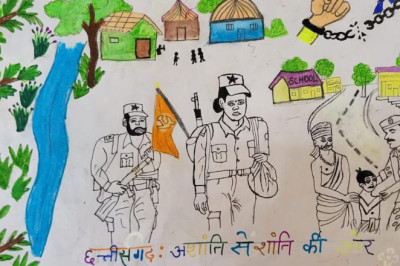 SCHOOL
छत्तीसगढ़ : अशांति से शांति की ओर